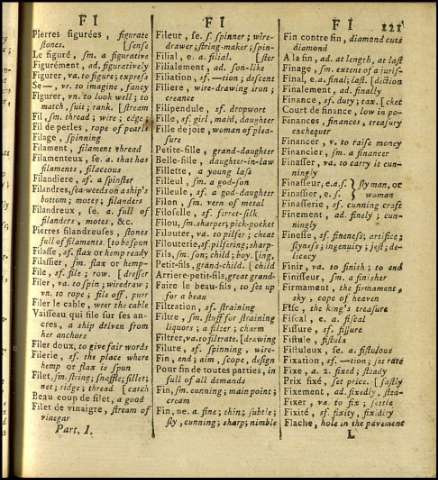 F I
F I
F I
221
Pierres figurées, figurate
stones. [sense
Le figuré, sm. a figurative
Figurément, ad. figuratively
Figurer, va. to figure; express
Se—, vr. to imagine, fancy
Figurer, vn. to look well; to
match, suit; rank. [stream
Fil, sm. thread; wire; edge;
Fil de perles, rope of pearls
Filage, spinning
Filament, filament thread
Filamenteux, se. a. that has
filaments, filaceous
Filandiere, sf. a spinster
Filandres, sea-weeds on a ship's
bottom; motes; filanders
Filandreux, se. a. full of
filanders, motes, &c.
Pierres filandreuses, stones
full of filaments [to be spun
Filasse, sf. flax or hemp ready
Filassier, sm. flax or hemp-
File, sf. file; row. [dresser
Filer, va. to spin; wiredraw;
vn. to rope; file off, purr
Filer le cable, veer the cable
Vaisseau qui file sur ses an-
cres, a ship driven from
her anchors
Filer doux, to give fair words
Filerie, sf. the place where
hemp or flax is spun
Filet, sm. string; snaffle; fillets
net; ridge; thread [catch
Beau coup de filet, a good
Filet de vinaigre, stream of
vinegar
Part. I.
Fileur, se. s. spinner; wire-
drawer; string-maker; spin-
Filial, e. a. filial. [ster
Filialement, ad. son-like
Filiation, sf. —tion; descent
Filiere, wire-drawing iron;
creance
Filipendule, sf. dropwort
Fille, sf. girl, maid, daughter
Fille de joie, woman of plea-
sure
Petite-fille, grand-daughter
Belle-fille, daughter-in-law
Fillette, a young lass
Filleul, sm. a god-son
Filleule, sf. a god-daughter
Filon, sm. vern of metal
Filoselle, sf. ferret-silk
Filou, sm. sharper; pick-pocket
Filouter, va. to pilfer; cheat
Filouterie, sf. pilfering; sharp-
Fils, sm. son; child; boy. [ing,
Petit-fils, grand-child. [child
Arriere-petit-fils, great grand-
Faire le beau-fils, to set up
for a beau
Filtration, sf. straining
Filtre, sm. stuff for straining
liquors; a filter; charm
Filtrer, va. to filtrate. [drawing
Filure, sf. spinning, wire-
Fin, end; aim, scope, design
Pour fin de toutes parties, in
full of all demands
Fin, sm. cunning; main point;
cream
Fin, ne. a. fine; thin; subtle;
sly, cunning; sharp; nimble
Fin contre fin, diamond cuts
diamond
A la fin, ad. at length, at last
Finage, sm. extent of a juris-
Final, e. a. final; last. [diction
Finalement, ad. finally
Finance, sf. duty; tax. [cket
Court de finance, low in po-
Finances, finances, treasury
exchequer
Financer, v. to raise money
Financier, sm. a financer
Finasser, va. to carry it cun-
ningly
Finasseur, e. a. s. } sly man, or
Finassier, e. s. } woman
Finasserie, sf. cunning craft
Finement, ad. finely; cun-
ningly
Finesse, sf. fineness; artifice;
slyness; ingenuity; jest; de-
licacy
Finir, va. to finish; to end
Finisseur, sm. a finisher
Firmament, the firmament,
sky, cope of heaven
Fisc, the king's treasure
Fiscal, e. a. fiscal
Fissure, sf. fissure
Fistule, fistula
Fistuleux, se. a. fistulous
Fixation, sf. —tion; set rate
Fixe, a. 2. fixed; steady
Prix fixé, set price. [fastly
Fixement, ad. fixedly, sted-
Fixer, va. to fix; settle
Fixité, sf. fixity, fixedity
Flache, hole in the pavement
L